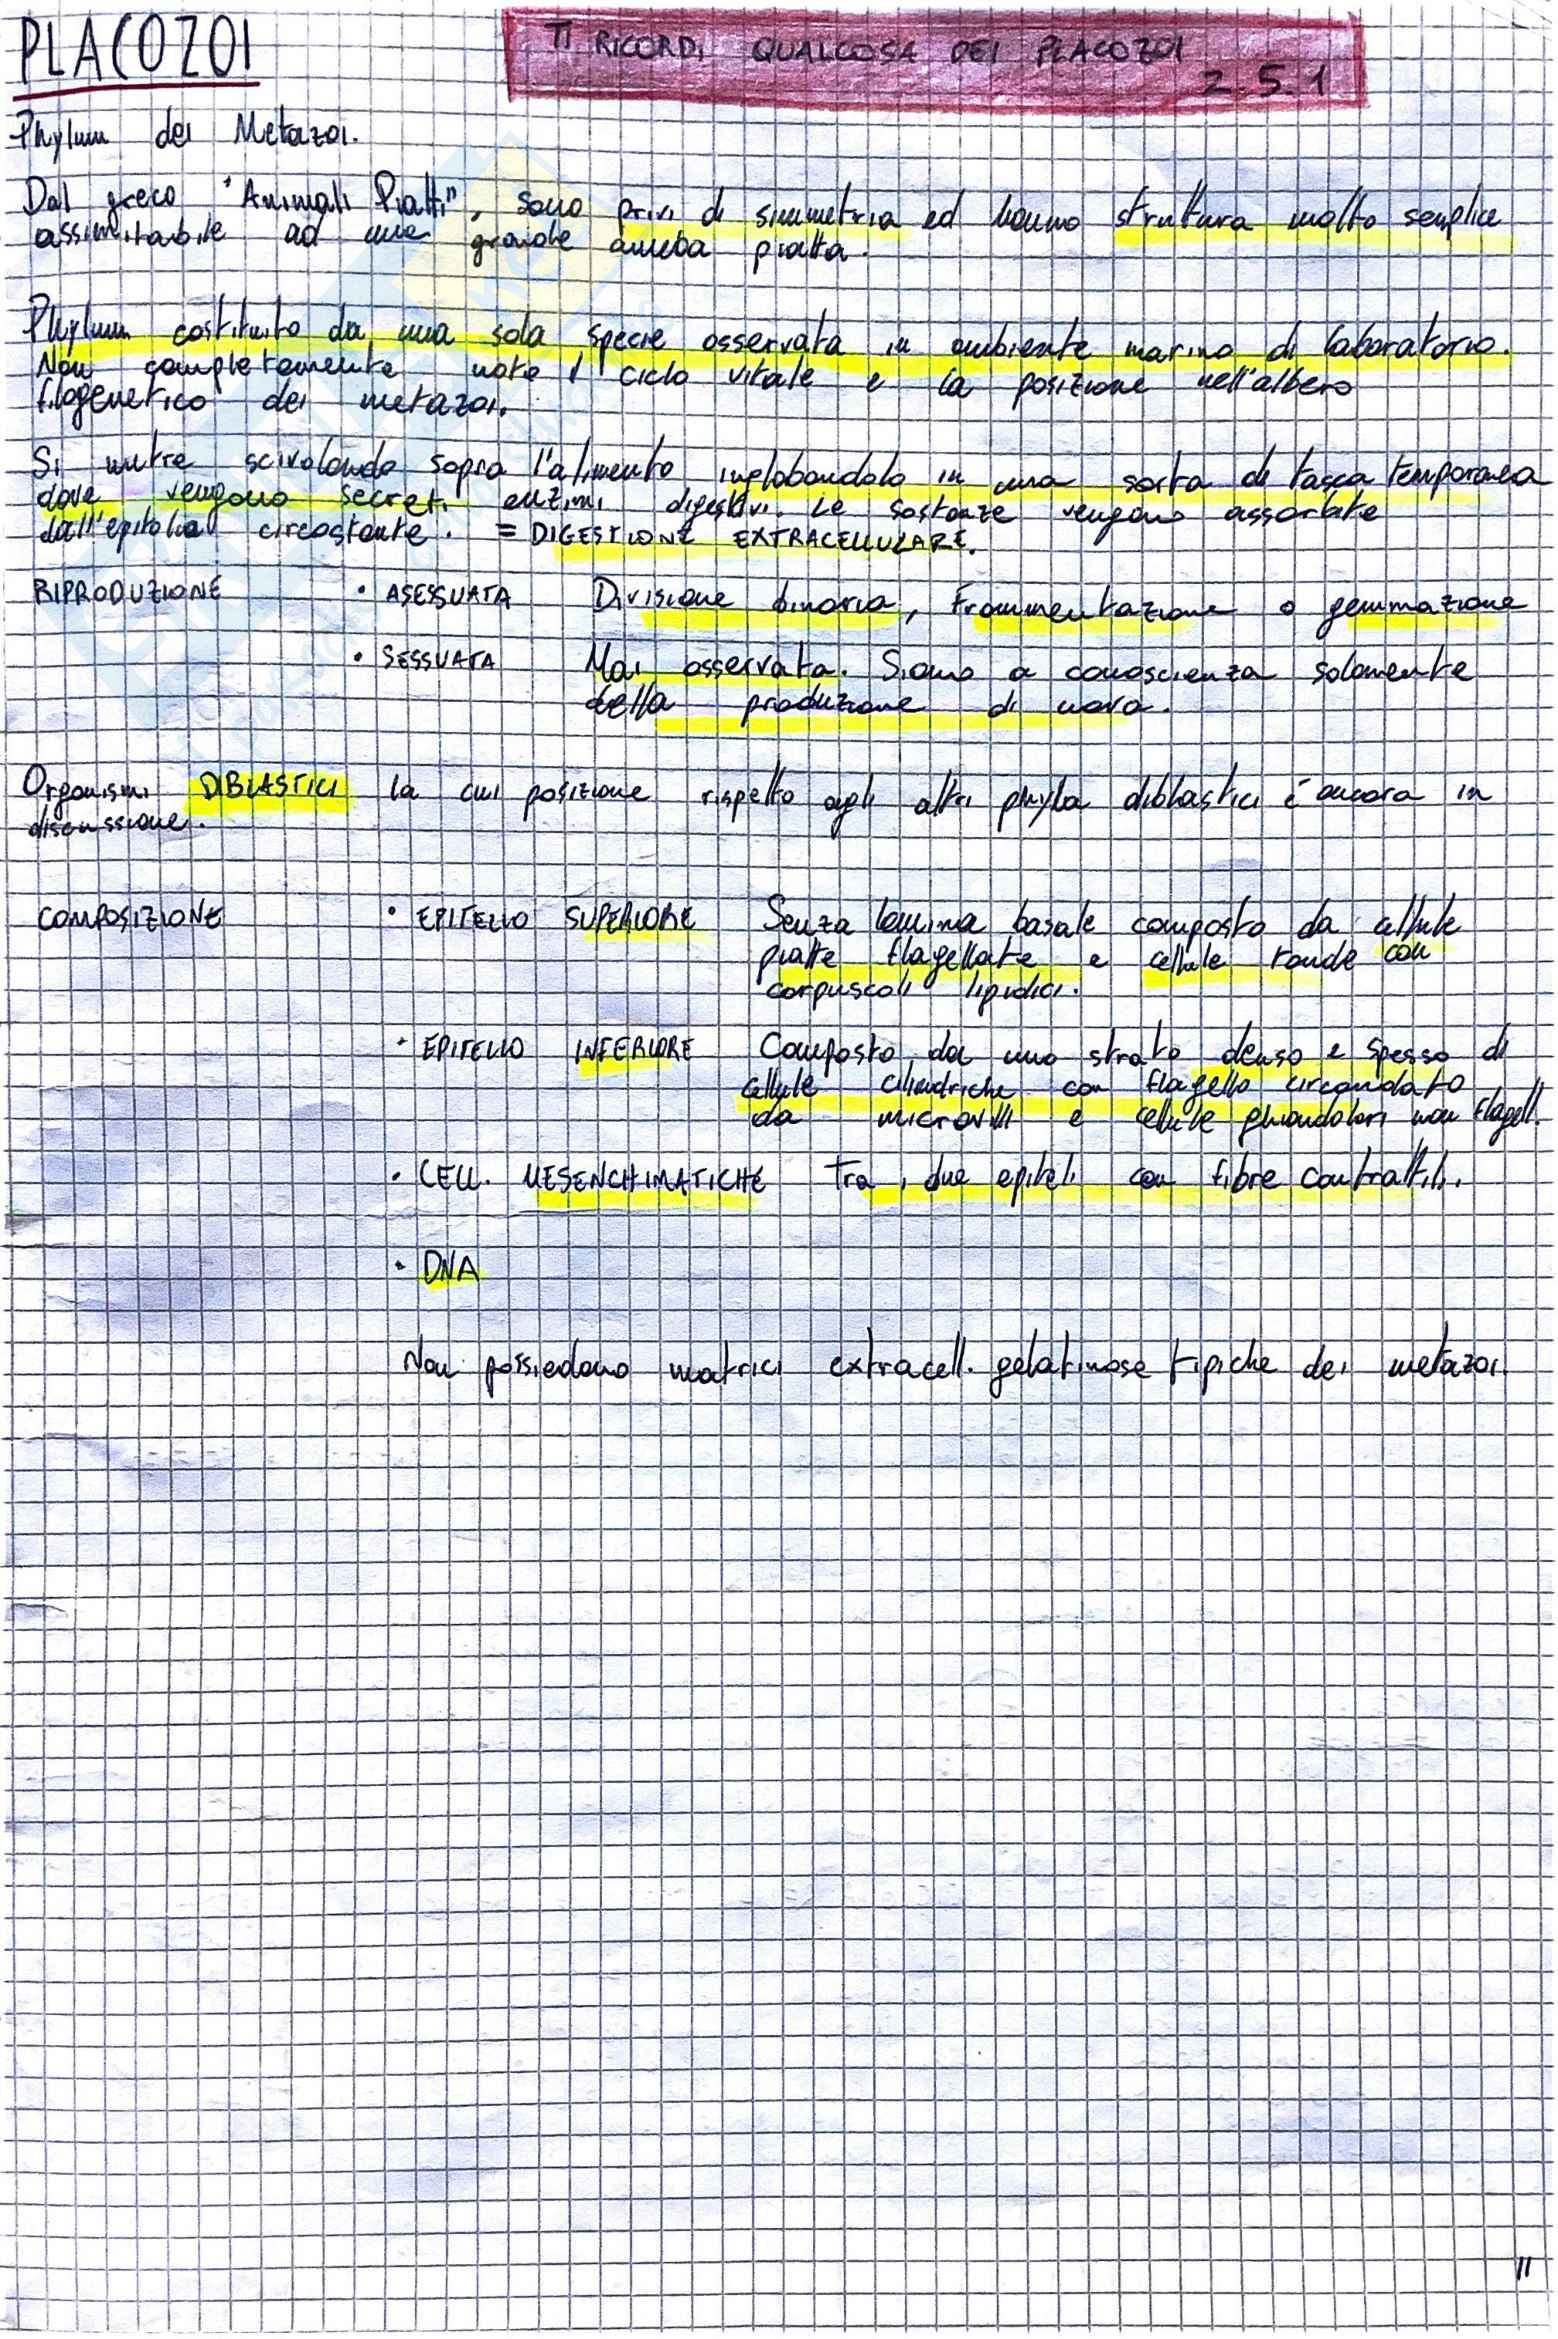 PLACOZOI
TI RICORDI QUALCOSA DEI PLACOZOI
2.5.1
Phylum dei Metazoi.
Dal greco "Animali Piatti", sono privi di simmetria ed hanno struttura molto semplice
assimilabile ad una grande ameba piatta.
Phylum costituito da una sola specie osservata in ambiente marino di laboratorio.
Non completamente note il ciclo vitale e la posizione nell'albero
filogenetico dei metazoi.
Si nutre scivolando sopra l'alimento inglobandolo in una sorta di tasca temporanea
dove vengono secreti enzimi digestivi. Le sostanze vengono assorbite
dall'epitelio circostante. = DIGESTIONE EXTRACELLULARE.
RIPRODUZIONE • ASESSUATA Divisione binaria, Frammentazione o gemmazione
• SESSUATA Mai osservata. Siamo a conoscienza solamente
della produzione di uova.
Organismi DIBLASTICI la cui posizione rispetto agli altri phyla diblastici è ancora in
discussione.
COMPOSIZIONE • EPITELIO SUPERIORE Senza lamina basale composto da cellule
piatte flagellate e cellule tonde con
corpuscoli lipidici.
• EPITELIO INFERIORE Composto da uno strato denso e spesso di
cellule cilindriche con flagello circondato
da microvilli e cellule ghiandolari non flagell.
• CELL. MESENCHIMATICHE Tra i due epiteli con fibre contrattili.
• DNA
Non possiedono matrici extracell. gelatinose tipiche dei metazoi.
11